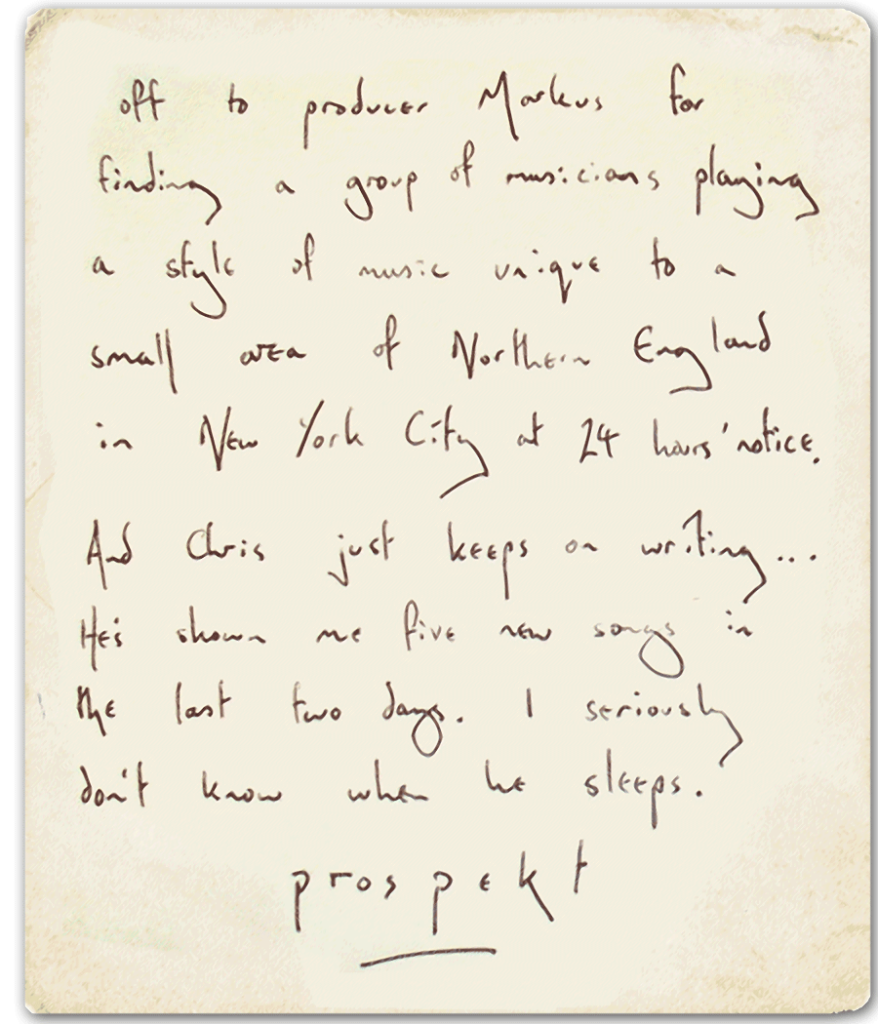 off to producer Markus for
finding a group of musicians playing
a style of music unique to a
small area of Northern England
in New York City at 24 hours' notice.
And Chris just keeps on writing...
He's shown me five new songs in
the last two days. I seriously
don't know when he sleeps.
prospekt